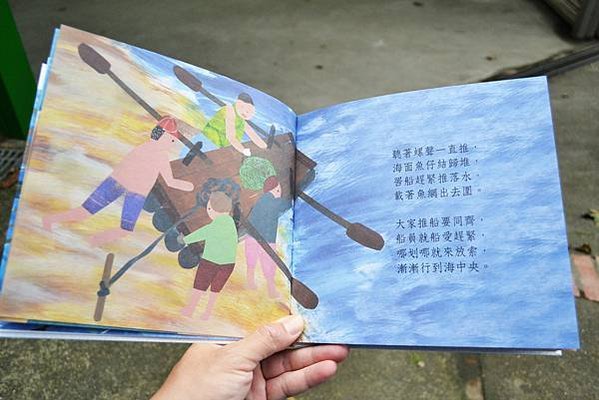 聽著螺聲一直推，
海面魚仔結歸堆，
罟船趕緊推落水，
載著魚網出去圍。
大家推船要同齊，
船員就船愛趕緊，
哪划哪就來放索，
漸漸行到海中央。